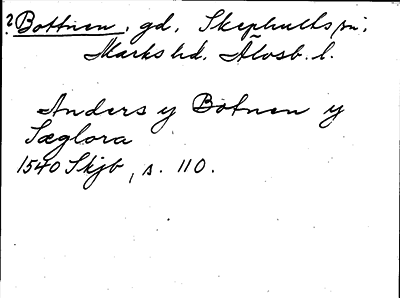 ? Bottnen, gd, Skephults sn;
Marks hd. Älvsb. l.
Anders y Botnen y
Sæglora
1540 Skjb, s. 110.